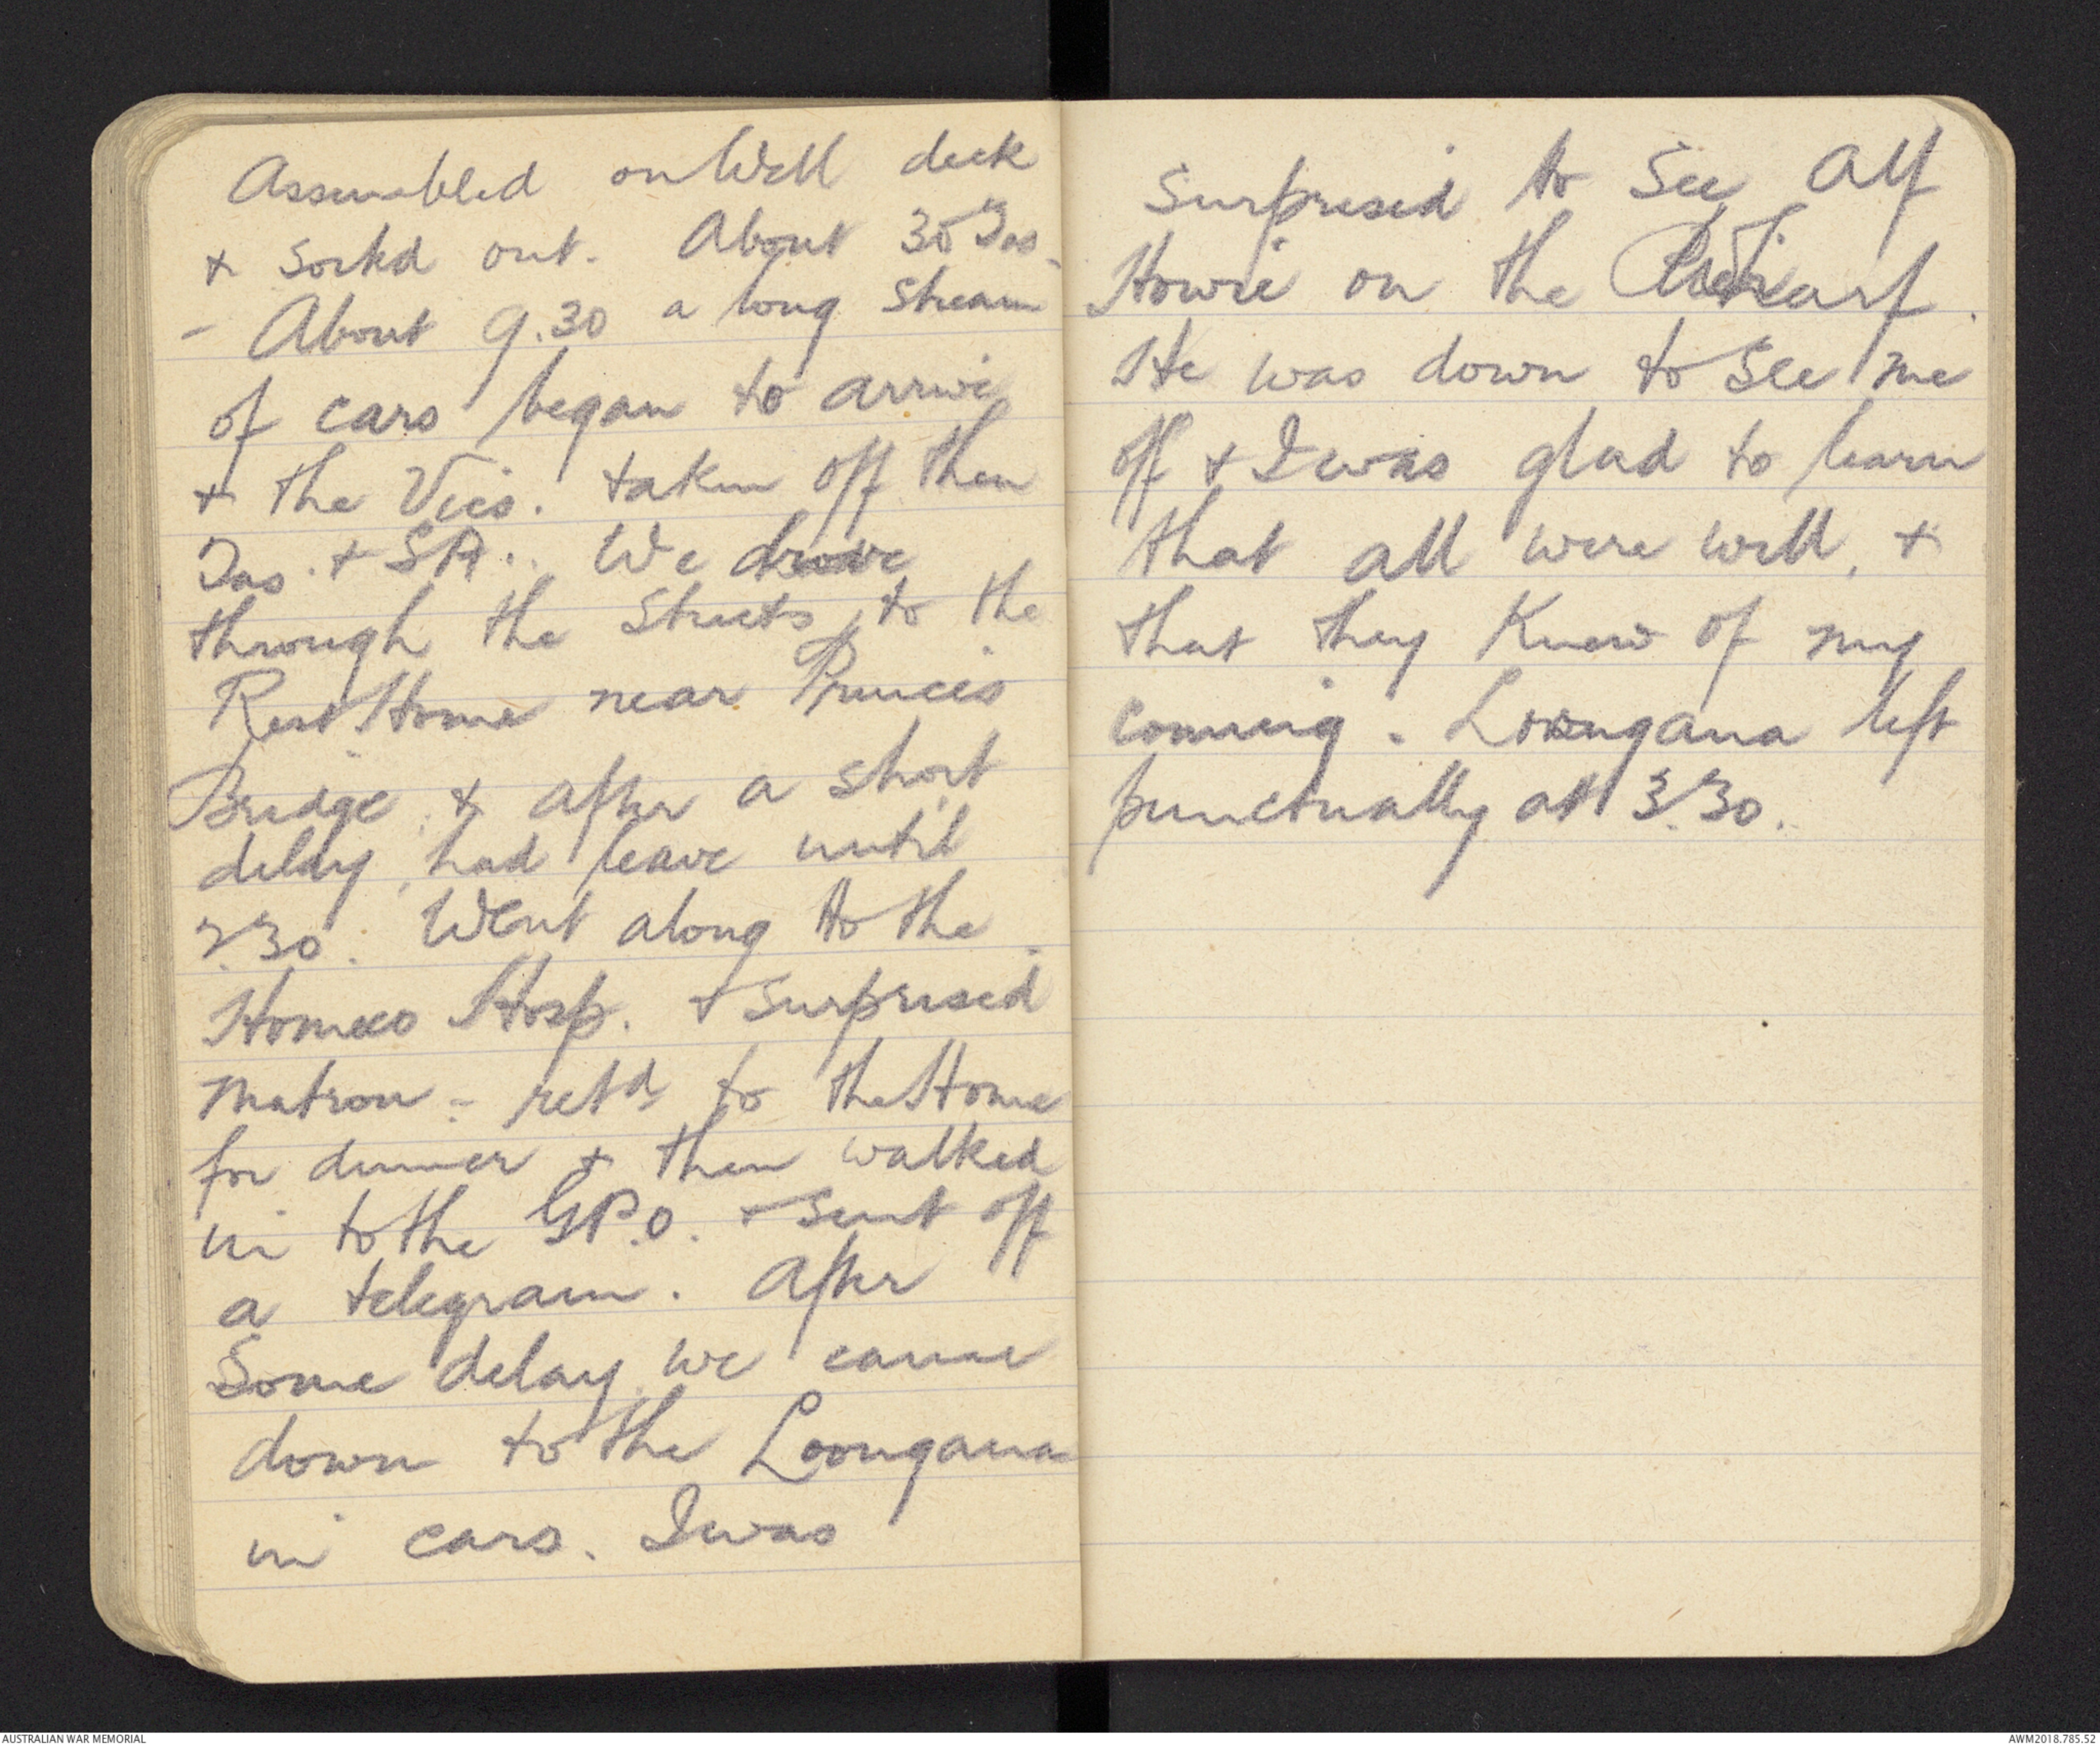 Assembled on Well deck
+ sorted out. About 30 Tas.
- About 9.30 a long stream
of cars began to arrive
+ the Vics. taken off then
Tas. + SA.. We drove
through the streets, to the
Rest Home near Princes
Bridge + after a short
delay, had leave until
2.30. Went along to the
Homeo Hosp. + surprised
Matron - retd to the Home
for dinner + then walked
in to the G.P.O. + sent off
a telegram. After
some delay we came
down to the Loongana
in cars. I was
surprised to see Alf
Howie on the Wharf.
He was down to see me
off + I was glad to learn
that all were well, +
that they knew of my
coming. Loongana left
punctually at 3.30.
AUSTRALIAN WAR MEMORIAL
AWM2018.785.52